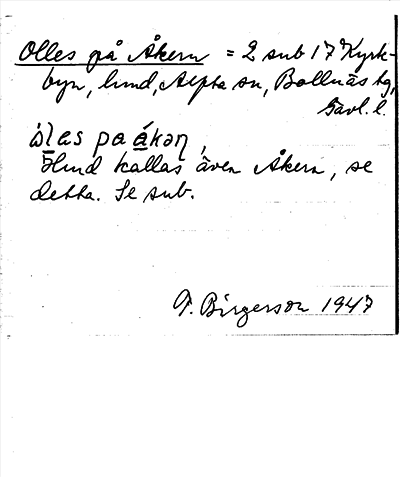 Olles på Åkern = 2 sub 17 Kyrk-
byn, hmd, Alfta sn, Bollnäs tg,
Gävl. l.
òlas pa ákəɳ,
Hmd kallas även Åkern, se
detta. Se sub.
G. Birgerson 1947